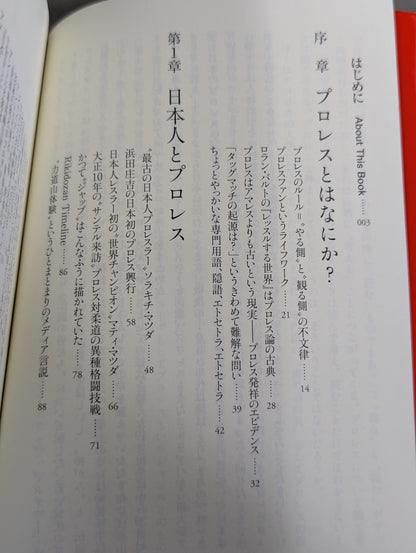 はじめに About This Book …… 003
序　章　プロレスとはなにか？
プロレスのルール＝“やる側”と“観る側”の不文律 …… 14
プロレスファンというライフワーク …… 21
ロラン・バルトの「レッスルする世界」はプロレス論の古典 …… 28
プロレスはアマレスよりも古いという現実――プロレス発祥のエビデンス …… 32
「タッグマッチの起源は？」というきわめて難解な問い …… 39
ちょっとやっかいな専門用語、隠語、エトセトラ、エトセトラ …… 42
第1章　日本人とプロレス
“最古の日本人プロレスラー”ソラキチ・マツダ …… 48
浜田庄吉の日本初のプロレス興行 …… 58
日本人レスラー初の“世界チャンピオン”マティ・マツダ …… 66
大正10年の“サンテル来訪”プロレス対柔道の異種格闘技戦 …… 71
かつて“ジャップ”はこんなふうに描かれていた …… 78
Rikidozan Timeline …… 86
“力道山体験”というひとまとまりのメディア言説 …… 88